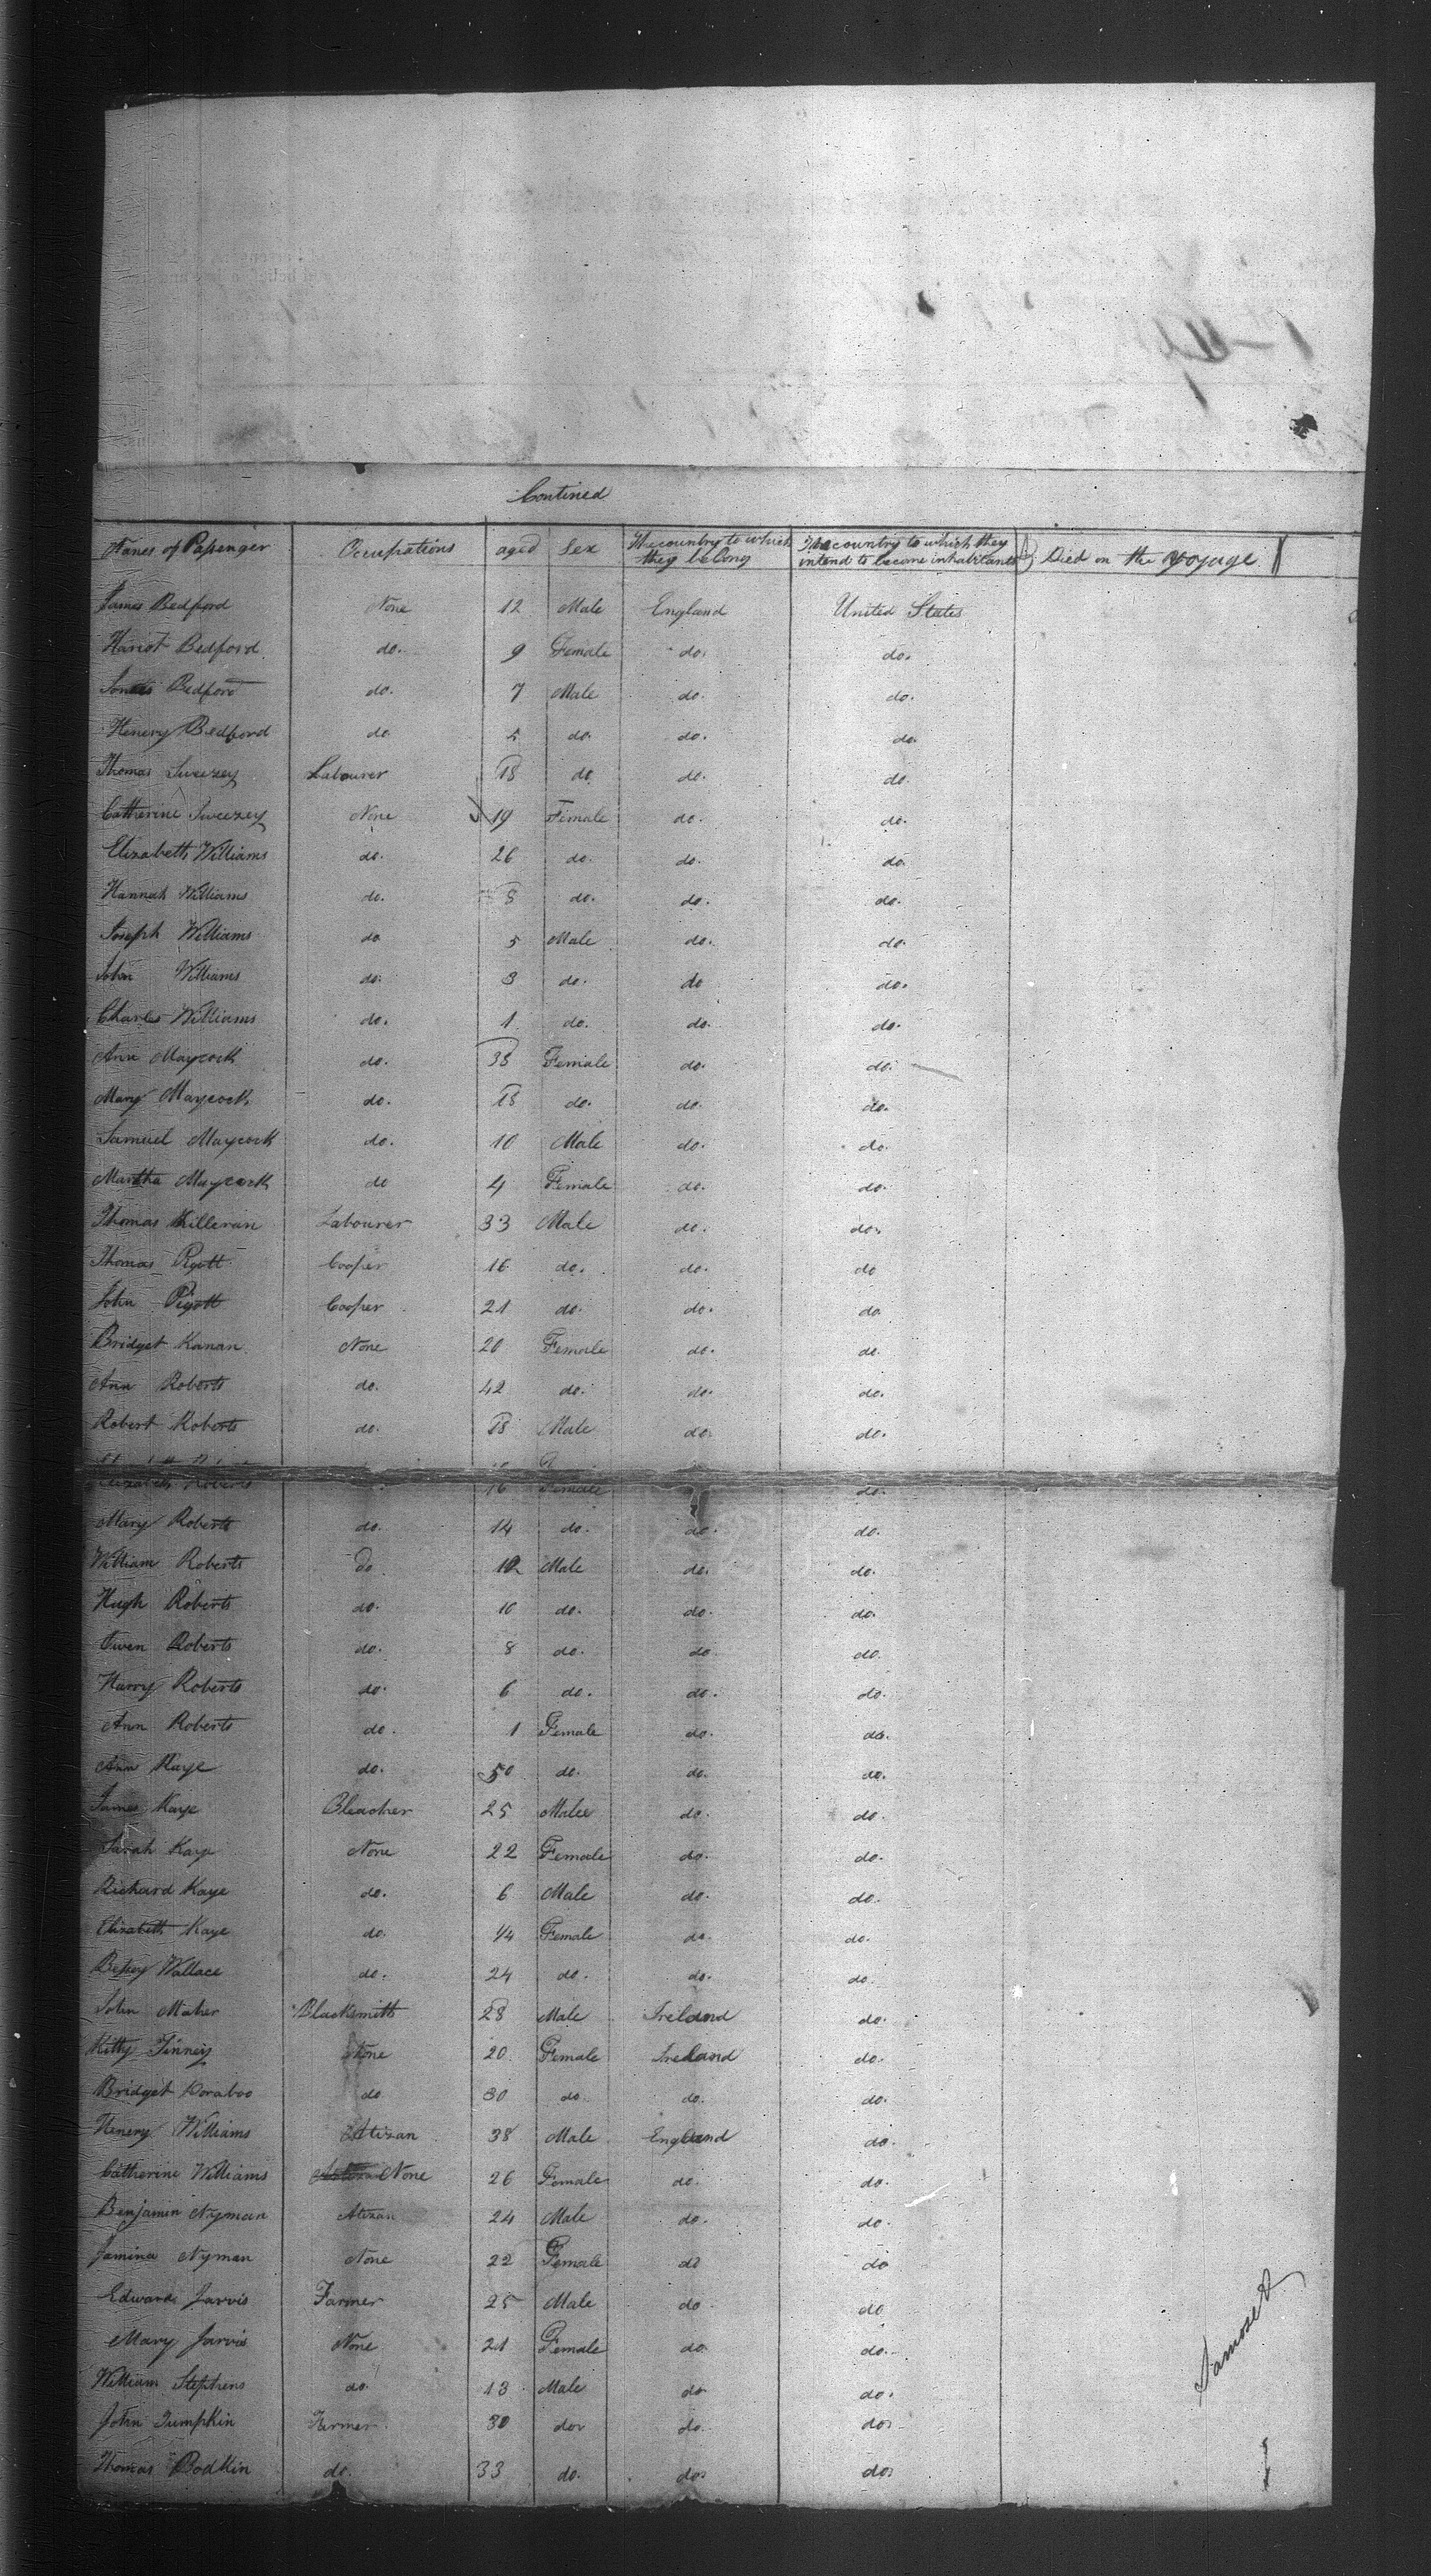 Contined
Names of Passenger Occupations aged Sex The country to which they belong The country to which they intend to become inhabitants Died on the voyage
James Bedford None 12 Male England United States
Hariot Bedford do. 9 Female do. do.
Bedford do. 7 Male do. do.
Henery Bedford do do. do. do.
Thomas Sweezey Labourer 18 do do. do.
Catherine Sweezey None 19 Female do. do.
Elizabeth Williams do. 26 do. do. do.
Hannah Williams do. 8 do. do. do.
Joseph Williams do 5 Male do. do.
John Williams do. 3 do. do do.
Charles Williams do. 1 do. do. do.
Ann Maycock do. 38 Female do. do.
Mary Maycock do. 18 do. do. do.
Samuel Maycock do. 10 Male do. do.
Martha Maycock do 4 Female do. do.
Thomas Killeran Labourer 33 Male do. do.
Thomas Pigott Cooper 16 do. do. do
John Pigott Cooper 21 do. do. do.
Bridget Kanan None 20 Female do. do.
Ann Roberts do. 42 do. do. do.
Robert Roberts do. 18 Male do. do.
Elizabeth Roberts 16 Female do.
Mary Roberts do. 14 do. do. do.
William Roberts do 12 Male do. do.
Hugh Roberts do. 10 do. do. do.
Owen Roberts do. 8 do. do do.
Harry Roberts do. 6 do. do. do.
Ann Roberts do. 1 Female do. do.
Ann Kaye do. 50 do. do. do.
James Kaye Bleacher 25 Male do. do.
Sarah Kaye None 22 Female do. do.
Richard Kaye do. 6 Male do. do.
Elizabeth Kaye do. 1/4 Female do. do.
Betsey Wallace do. 24 do. do. do.
John Maher Blacksmith 28 Male Ireland do.
Kitty Finney None 20 Female Ireland do.
Bridget do 30 do. do. do.
Henery Williams Atizan 38 Male England do.
Catherine Williams None 26 Female do. do.
Benjamin Nyman Atizan 24 Male do. do.
Jamina Nyman None 22 Female do do
Edward Jarvis Farmer 25 Male do do
Mary Jarvis None 21 Female do. do.
William Stephens do. 13 Male do do.
John Tumpkin Farmer 30 do. do. do.
Thomas Bodkin do. 33 do. do. do.
Samoset